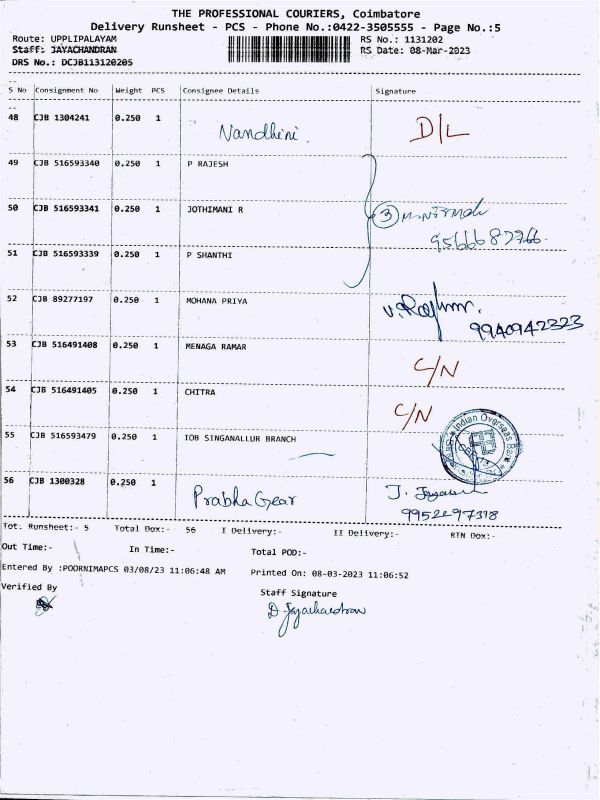 THE PROFESSIONAL COURIERS, Coimbatore
Delivery Runsheet - PCS - Phone No.:0422-3505555 - Page No.:5
Route: UPPLIPALAYAM RS No.: 1131202
Staff: JAYACHANDRAN RS Date: 08-Mar-2023
DRS No.: DCJB113120205
S No Consignment No Weight PCS Consignee Details Signature
48 CJB 1304241 0.250 1 Nandhini. D/L
49 CJB 516593340 0.250 1 P RAJESH
50 CJB 516593341 0.250 1 JOTHIMANI R 3
51 CJB 516593339 0.250 1 P SHANTHI
52 CJB 89277197 0.250 1 MOHANA PRIYA
9940942323
53 CJB 516491408 0.250 1 MENAGA RAMAR C/N
54 CJB 516491405 0.250 1 CHITRA C/N
55 CJB 516593479 0.250 1 IOB SINGANALLUR BRANCH Indian Overseas Bank
56 CJB 1300328 0.250 1 Prabha Gear
Tot. Runsheet:- 5 Total Dox:- 56 I Delivery:- II Delivery:- RTN Dox:-
Out Time:- In Time:- Total POD:-
Entered By :POORNIMAPCS 03/08/23 11:06:48 AM Printed On: 08-03-2023 11:06:52
Verified By Staff Signature
D. Jayachandran